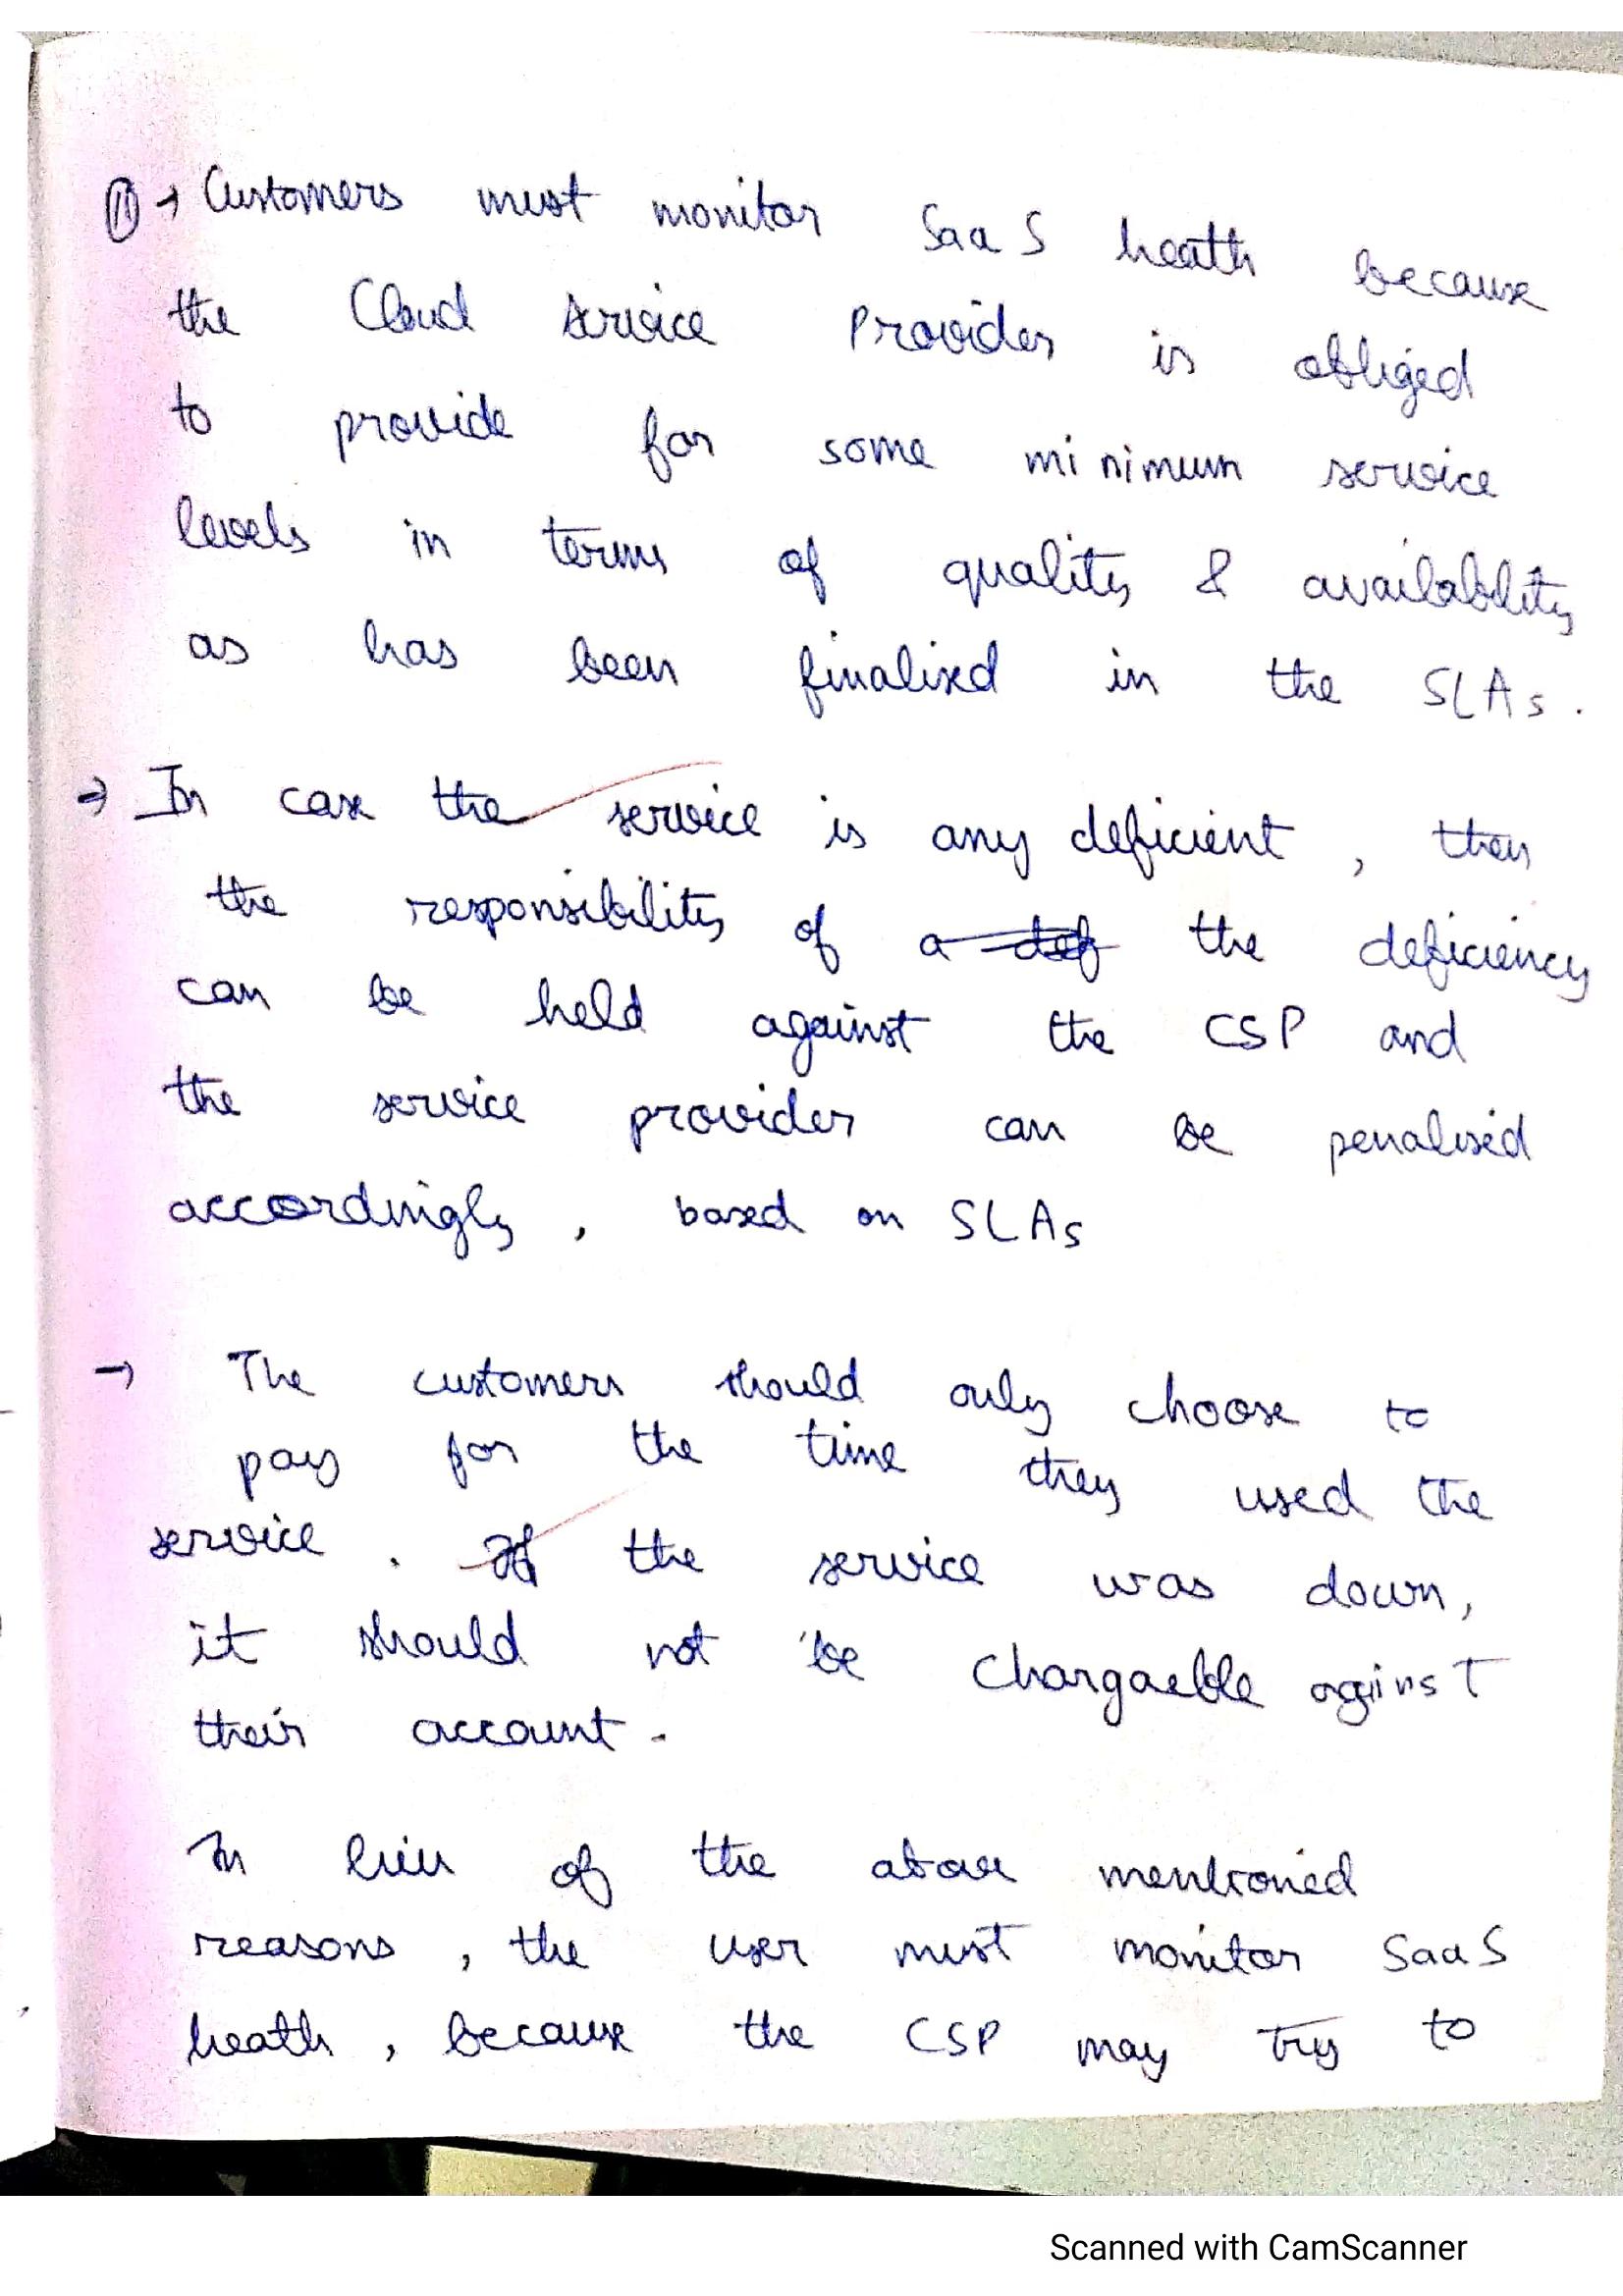 (11) → Customers must monitor SaaS heath because
the Cloud service Provider is obliged
to provide for some minimum service
levels in terms of quality & availablity
as has been finalised in the SLAs.
→ In case the service is any deficient, then
the responsibility of a def the deficiency
can be held against the CSP and
the service provider can be penalised
accordingly, based on SLAs
→ The customers should only choose to
pay for the time they used the
service. If the service was down,
it should not be Chargaeble against
their account.
In lieu of the above mentioned
reasons, the user must monitor SaaS
heath, because the CSP may try to
Scanned with CamScanner